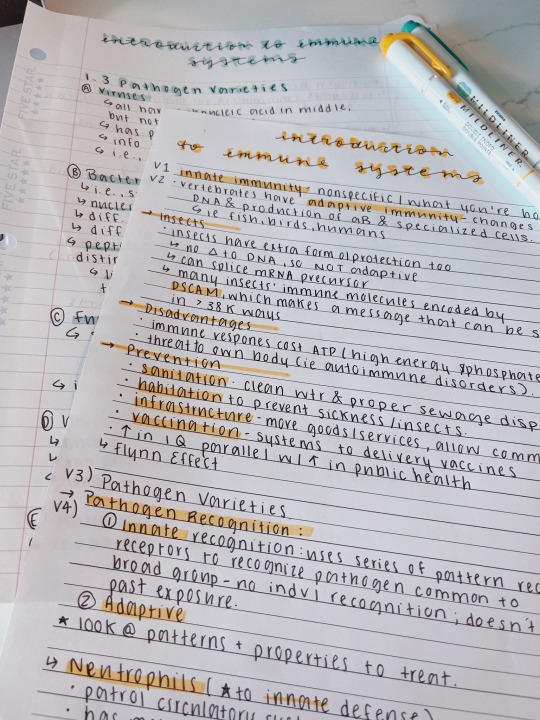 introduction to immune
systems
1.3 Pathogen Varieties
A Viruses
↳ all hav nucleic acid in middle,
but not
↳ has p
↳ info
↳ i.e.,
B Bacter
↳ i.e., s
↳ nucle
↳ diff.
↳ diff
↳ pept
distin
C Fu
D V
E
FIVE STAR
FIVE STAR
MILDLINER
introduction
to immune systems
V1 innate immunity - nonspecific / what you're bo
V2 · vertebrates have adaptive immunity - changes
DNA & production of aB & specialized cells.
↳ ie fish, birds, humans
→ Insects
· insects have extra form of protection too
↳ no Δ to DNA, so NOT adaptive
↳ can splice mRNA precursor
↳ many insects' immune molecules encoded by
DSCAM, which makes a message that can be s
in >38K ways
→ Disadvantages
· immune respones cost ATP (high energy phosphate
· threat to own body (ie autoimmune disorders).
→ Prevention
· sanitation - clean wtr & proper sewage disp
· habitation to prevent sickness/insects.
· infrastructure - more goods/services, allow comm
· vaccination - systems to delivery vaccines
· ↑ in IQ parallel w/ ↑ in public health
↳ Flynn Effect
V3) Pathogen Varieties
→
V4) Pathogen Recognition:
① Innate recognition: uses series of pattern rec
receptors to recognize pathogen common to
broad group - no indvl recognition; doesn't
past exposure.
② Adaptive
★ 100K @ patterns + properties to treat.
↳ Neutrophils (★ to innate defense)
· patrol circulatory sys
· has